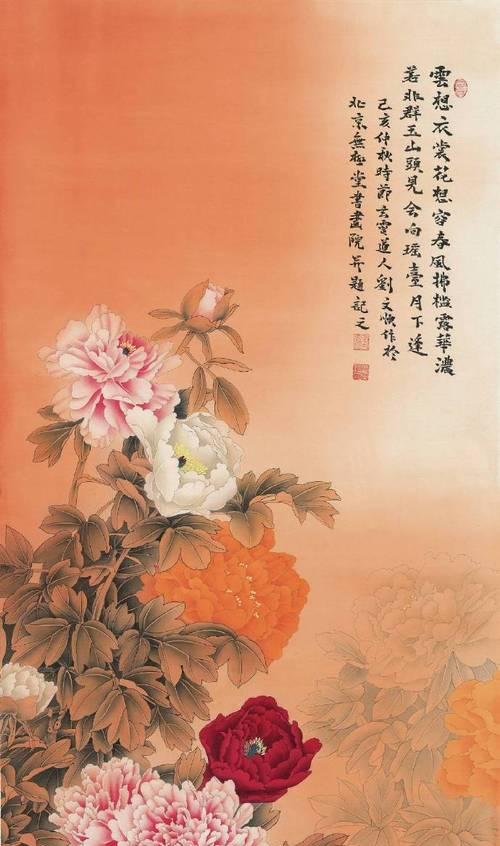 雲想衣裳花想容春風拂檻露華濃
若非群玉山頭見会向瑶臺月下逢
己亥仲秋時節玄靈道人劉文作於
北京無極堂書畫院并題記之